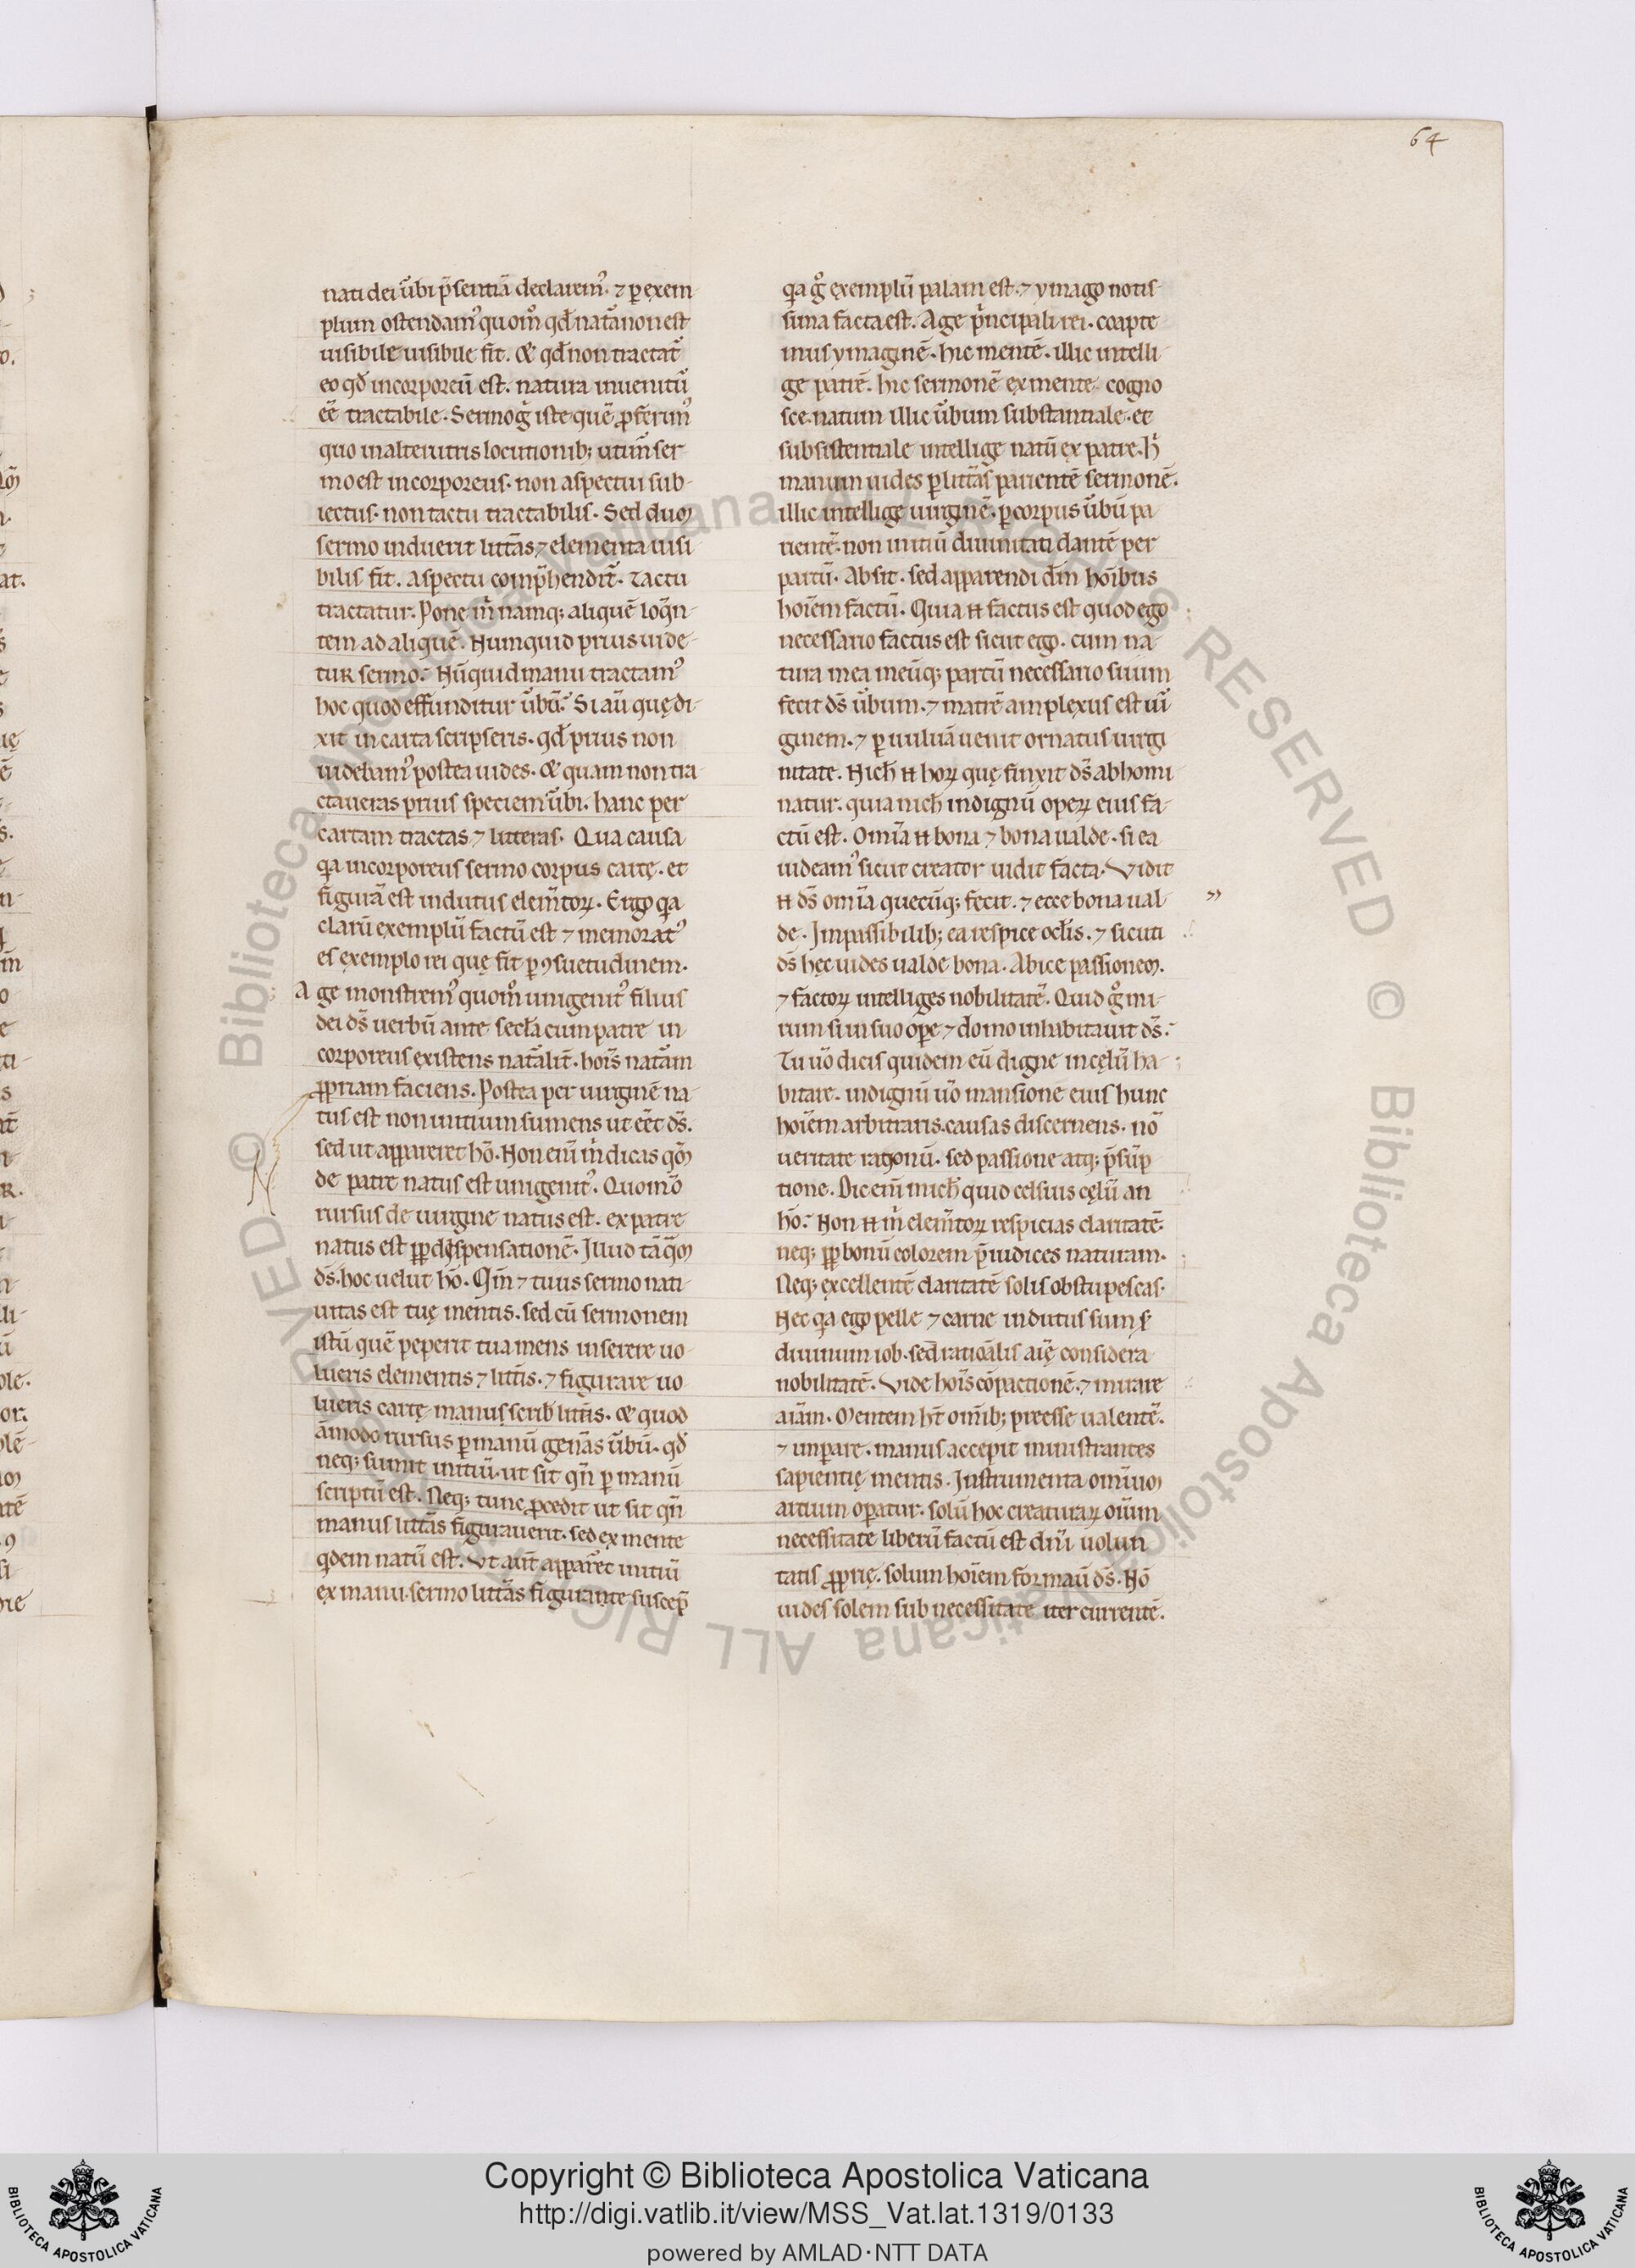 64
nati dei ũbi p̃sentiã declarem᾽. ⁊ ꝑ exem
plum ostendam᾽ quom̊ qđ nat̃a non est
uisibile uisibile fit. & qđ non tractat᷑
eo qđ incorporeũ est. natura inuenitũ
eẽ tractabile. Sermo g̃ iste quẽ ꝓferim᾽
quo in alterutris locutionib; utim̃ ser
mo est incorporeus. non aspectui sub-
iectus. non tactu tractabilis. Sed duͫ
sermo induerit litt̃as ⁊ elementa uisi
bilis fit. aspectu comp̃hendit᷑. Tactu
tractatur. Pone m̃ namq; aliquẽ loq̃n-
tem ad aliquẽ. Nunquid prius uide-
tur sermo? Nũquid manu tractam᾽
hoc quod effunditur ũbũ? Si aũ quę di-
xit in carta scripseris. qđ prius non
uidebam᾽ postea uides. & quam non tra-
ctaueras prius speciem ũbi. hanc per
cartam tractas ⁊ litteras. Qua causa
q̃a incorporeus sermo corpus cartę. et
figurã est indutus elem̃toꝝ. Ergo q̃a
clarũ exemplũ factũ est ⁊ memorat᾽
es exemplo rei quę fit ꝑ ꝯsuetudinem.
Age monstrem᾽ quom̊ unigenit᾽ filius
dei ds̃ uerbũ ante secl̃a cum patre in
corporeus existens nat̃alit̃. hoĩs nat̃am
ꝓpriam faciens. Postea per uirginẽ na
tus est non initium sumens ut eẽt ds̃.
sed ut appareret hõ. Non enĩ m̃ dicas qͦm
de patre natus est unigenit᾽. Quomõ
rursus de uirgine natus est. ex patre
natus est ꝓp dispensationẽ. Illud tãq̃m
ds̃. hoc uelut hõ. Qm̃ ⁊ tuus sermo nati
uitas est tuę mentis. sed cũ sermonem
istũ quẽ peperit tua mens inserere uo
lueris elementis ⁊ litt̃is. ⁊ figurare uo
lueris cartę manus scrib̃ litt̃is. & quod
ãmodo rursus ꝑ manũ gen̾as ũbũ. qđ
neq; sumit initiũ. ut sit qñ ꝑ manũ
scriptũ est. Neq; tunc ꝓcedit ut sit qñ
manus litt̃as figurauerit. sed ex mente
q̃dem natũ est. Vt aut̃ appar̾et initiũ
ex manu. sermo litt̃as figurante suscep̃
q̃a g̊ exemplũ palam est. ⁊ ymago notis
sima facta est. Age p̃ncipali rei. coapte
mus ymaginẽ. hic mentẽ. illic intelli
ge patrẽ. hic sermonẽ ex mente cogno
sce natum illic ũbum substantiale. et
subsistentiale intellige natũ ex patre. h̃
manum uides ꝑ litt̃as parientẽ sermonẽ.
illic intellige uirginẽ. ꝑ corpus ũbũ pa
rientẽ. non initiũ diuinitati dantẽ per
partũ. Absit. sed apparendi dm̃ hoĩbus
hoĩem factũ. Quia ħ factus est quod ego
necessario factus est sicut ego. cum na-
tura mea meũq; partũ necessario suum
fecit ds̃ ũbum. ⁊ matrẽ amplexus est uĩ
ginem. ⁊ ꝑ uuluã uenit ornatus uirgi
nitate. Nich̃ ħ hoꝝ quę finxit ds̃ abhomi
natur. quia nich̃ indignũ operꝝ eius fa-
ctũ est. Om̃ia ħ bona ⁊ bona ualde. si ea
uideam᾽ sicut creator uidit facta. Vidit
ħ ds̃ om̃ia quecũq; fecit. ⁊ ecce bona ual-
de. Impassibilib; ea respice ocl̃is. ⁊ sicuti
ds̃ hęc uides ualde bona. Abice passionem.
⁊ factoꝝ intelliges nobilitatẽ. Quid g̊ mi-
rum si in suo oꝑe ⁊ domo inhabitauit ds̃?
Tu ũo dicis quidem eũ digne in cęlũ ha-
bitare. indignũ ũo mansionẽ eius hunc
hoĩem arbitraris. causas discernens. nõ
ueritate rationũ. sed passione atq; p̃sũp
tione. Dic enĩ mich̃ quid celsius cęlũ an
hõ? Non ħ m̃ elem̃toꝝ respicias claritatẽ.
neq; ꝓp bonũ colorem p̃iudices naturam.
Neq; excellentẽ claritatẽ solis obstupescas.
Nec q̃a ego pelle ⁊ carne indutus sum s̃
diuinum iob. sed rationalis aĩę considera
nobilitatẽ. Vide hoĩs cõpactionẽ. ⁊ mirare
aĩam. Mentem ht̃ om̃ib; preesse ualentẽ.
⁊ imꝑare. manus accepit ministrantes
sapientię mentis. Instrumenta om̃iuͫ
artium oꝑatur. solũ hoc creaturaꝝ oĩum
necessitate liberũ factũ est diũi uolun
tatis ꝓprię. solum hoĩem formau̾ ds̃. Nõ
uides solem sub necessitate iter currentẽ.
Copyright © Biblioteca Apostolica Vaticana
http://digi.vatlib.it/view/MSS_Vat.lat.1319/0133
powered by AMLAD·NTT DATA